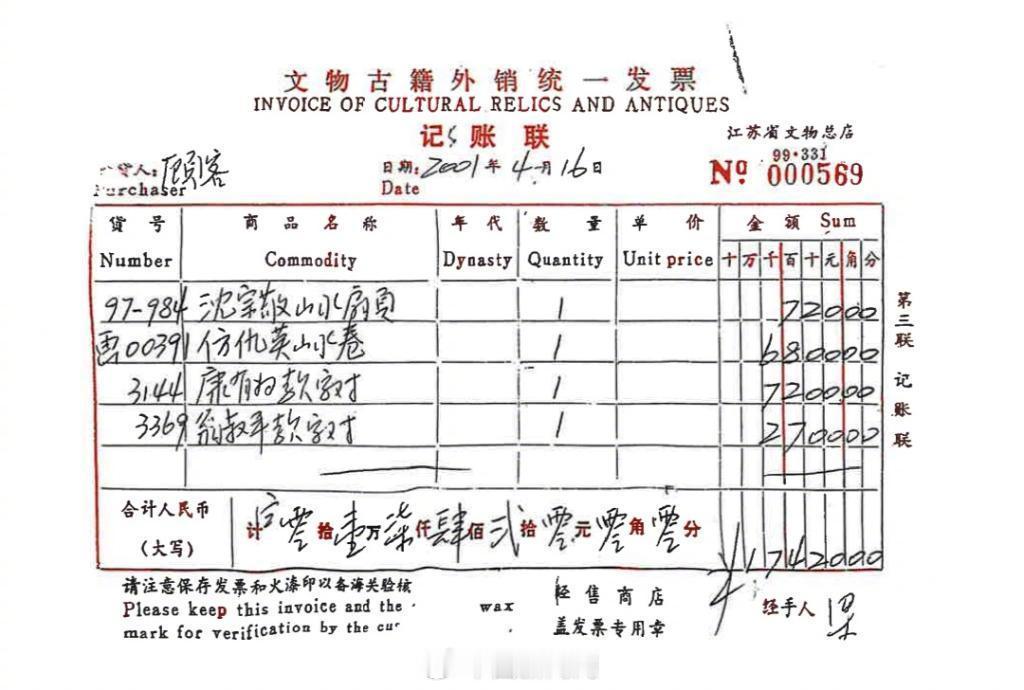 文物古籍外销统一发票
INVOICE OF CULTURAL RELICS AND ANTIQUES
记账联
江苏省文物总店
99·331
货人:顾客
Purchaser
日期:2001年4月16日
Date
Nº 000569
货号 商品名称 年代 数量 单价 金额 Sum
Number Commodity Dynasty Quantity Unit price 十万千百十元角分
97-984 沈宗敬山水扇页 1 72000
00391 仿仇英山水卷 1 680000
3144 康有为款字对 1 720000
3369 翁叔平款字对 1 270000
合计人民币
(大写)
计 零拾壹万柒仟肆佰贰拾零元零角零分
¥1742000
请注意保存发票和火漆印以备海关验核
Please keep this invoice and the wax
mark for verification by the cu
经售商店
盖发票专用章
经手人
第三联 记账联